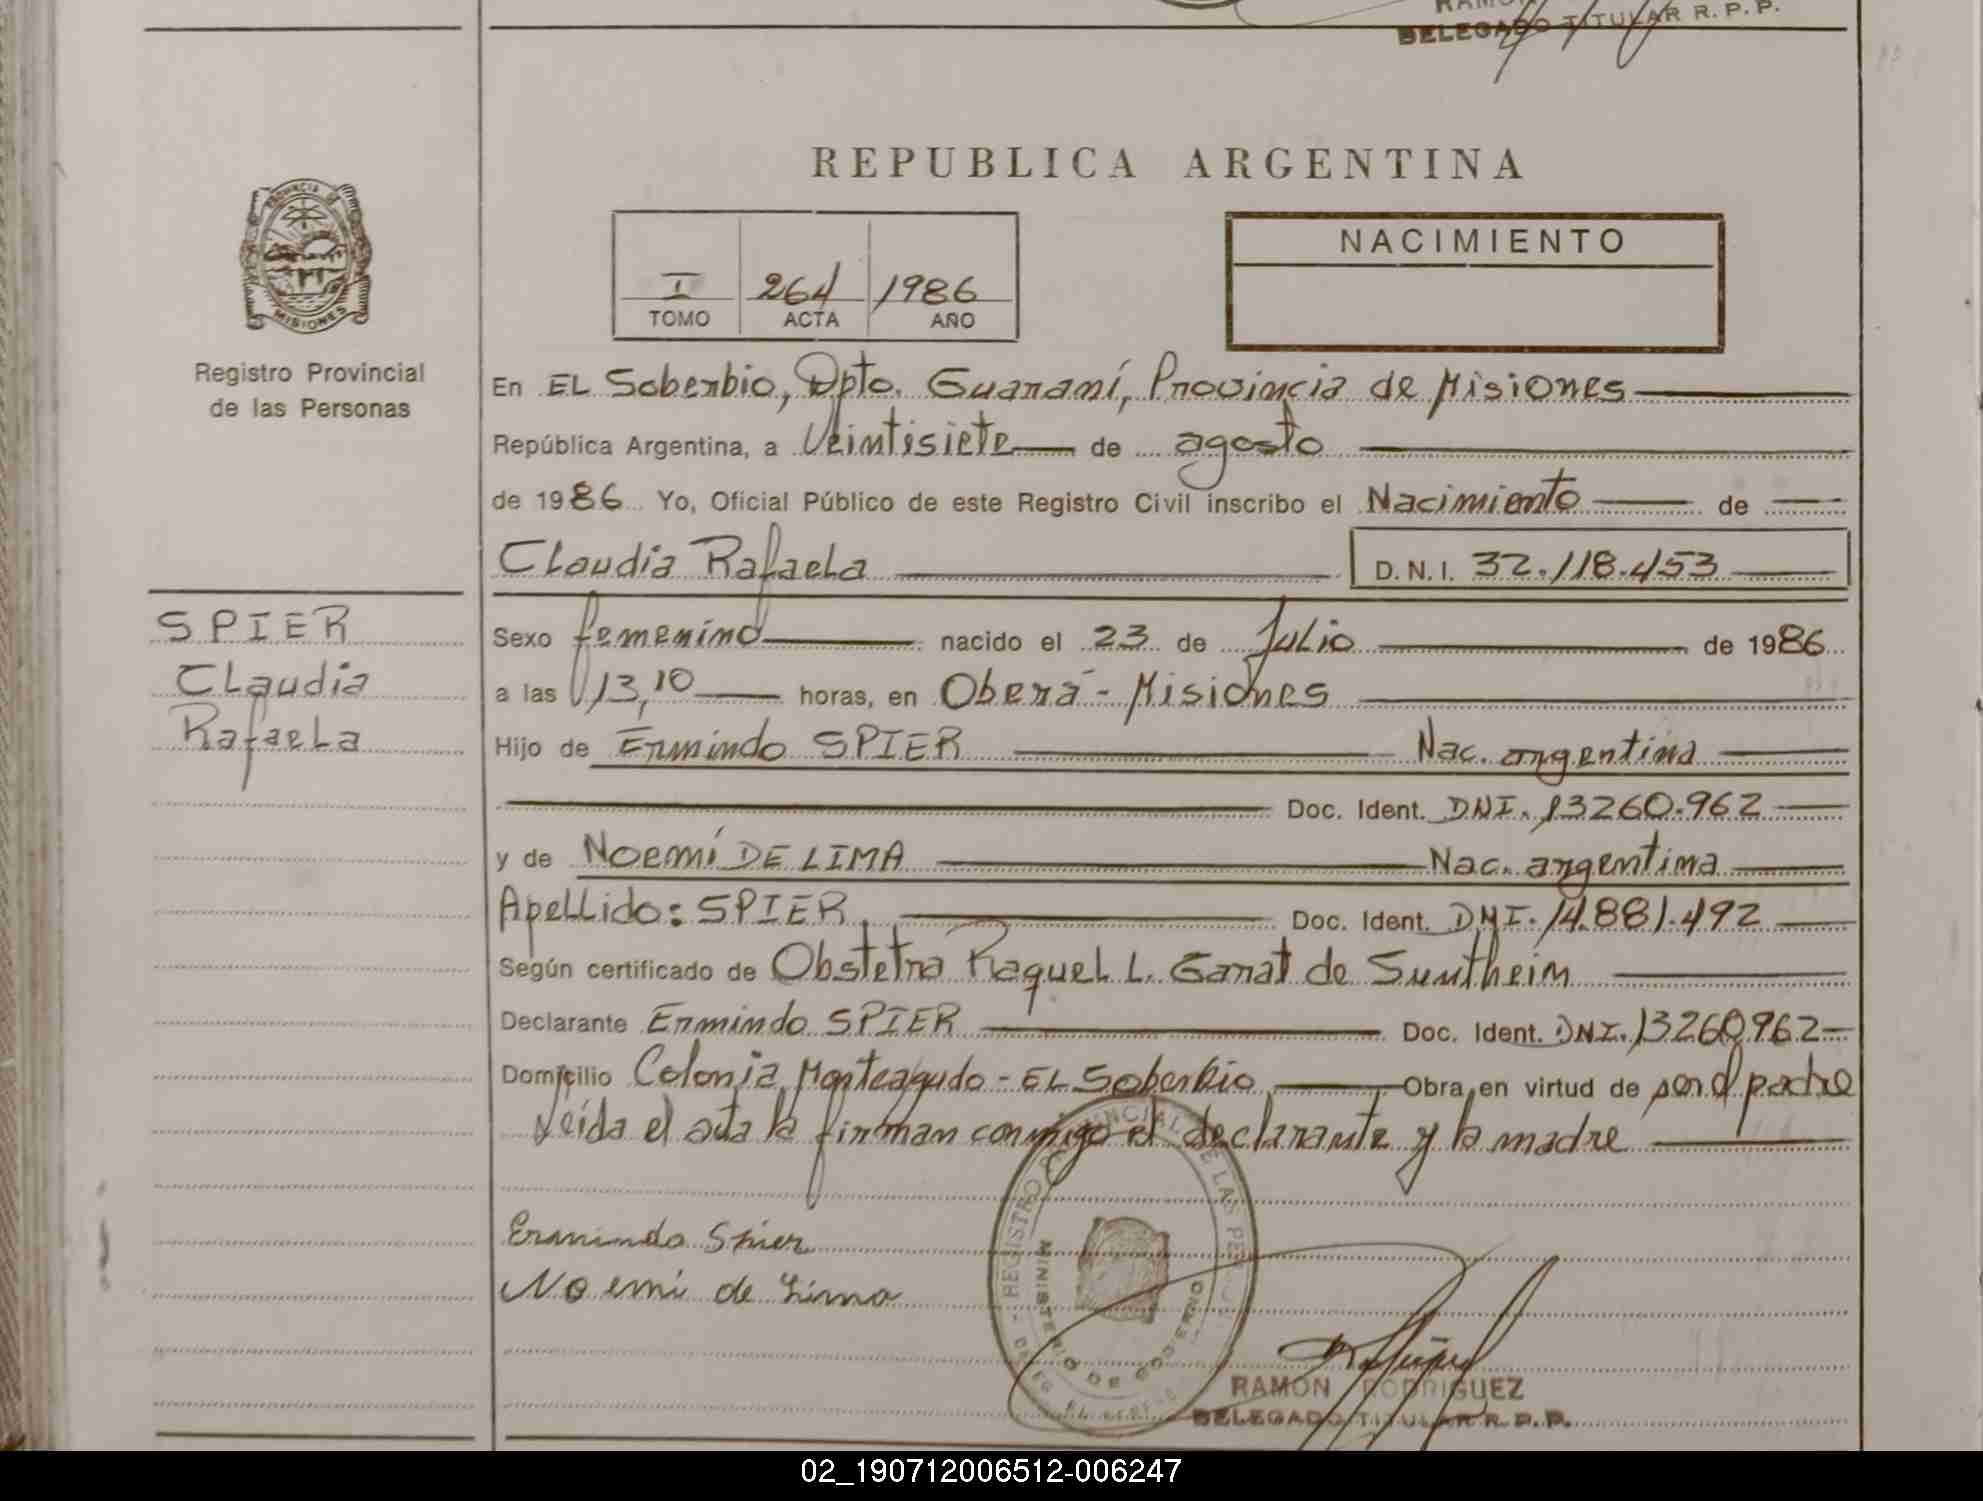 DELEGADO TITULAR R.P.P.
REPUBLICA ARGENTINA
PROVINCIA DE
MISIONES
Registro Provincial
de las Personas
I 264 1986
TOMO ACTA AÑO
NACIMIENTO
En EL Soberbio, Dpto. Guaraní, Provincia de Misiones
República Argentina, a Veintisiete de agosto
de 1986 Yo, Oficial Público de este Registro Civil inscribo el Nacimiento de
Claudia Rafaela D.N.I. 32.118.453
SPIER
Claudia
Rafaela
Sexo femenino nacido el 23 de Julio de 1986
a las 13,10 horas, en Oberá - Misiones
Hijo de Ermindo SPIER Nac. argentina
Doc. Ident. DNI. 13260.962
y de Noemí DE LIMA Nac. argentina
Apellido: SPIER Doc. Ident. DNI. 14.881.492
Según certificado de Obstetra Raquel L. Garat de Suntheim
Declarante Ermindo SPIER Doc. Ident. DNI. 13260962
Domicilio Colonia Monteagudo - EL Soberbio Obra en virtud de ser el padre
Leída el acta la firman conmigo el declarante y la madre
Ermindo Spier
Noemi de Lima
REGISTRO PROVINCIAL DE LAS
MINISTERIO DE GOBIERNO
RAMON RODRIGUEZ
DELEGADO TITULAR R.P.P.
02_190712006512-006247